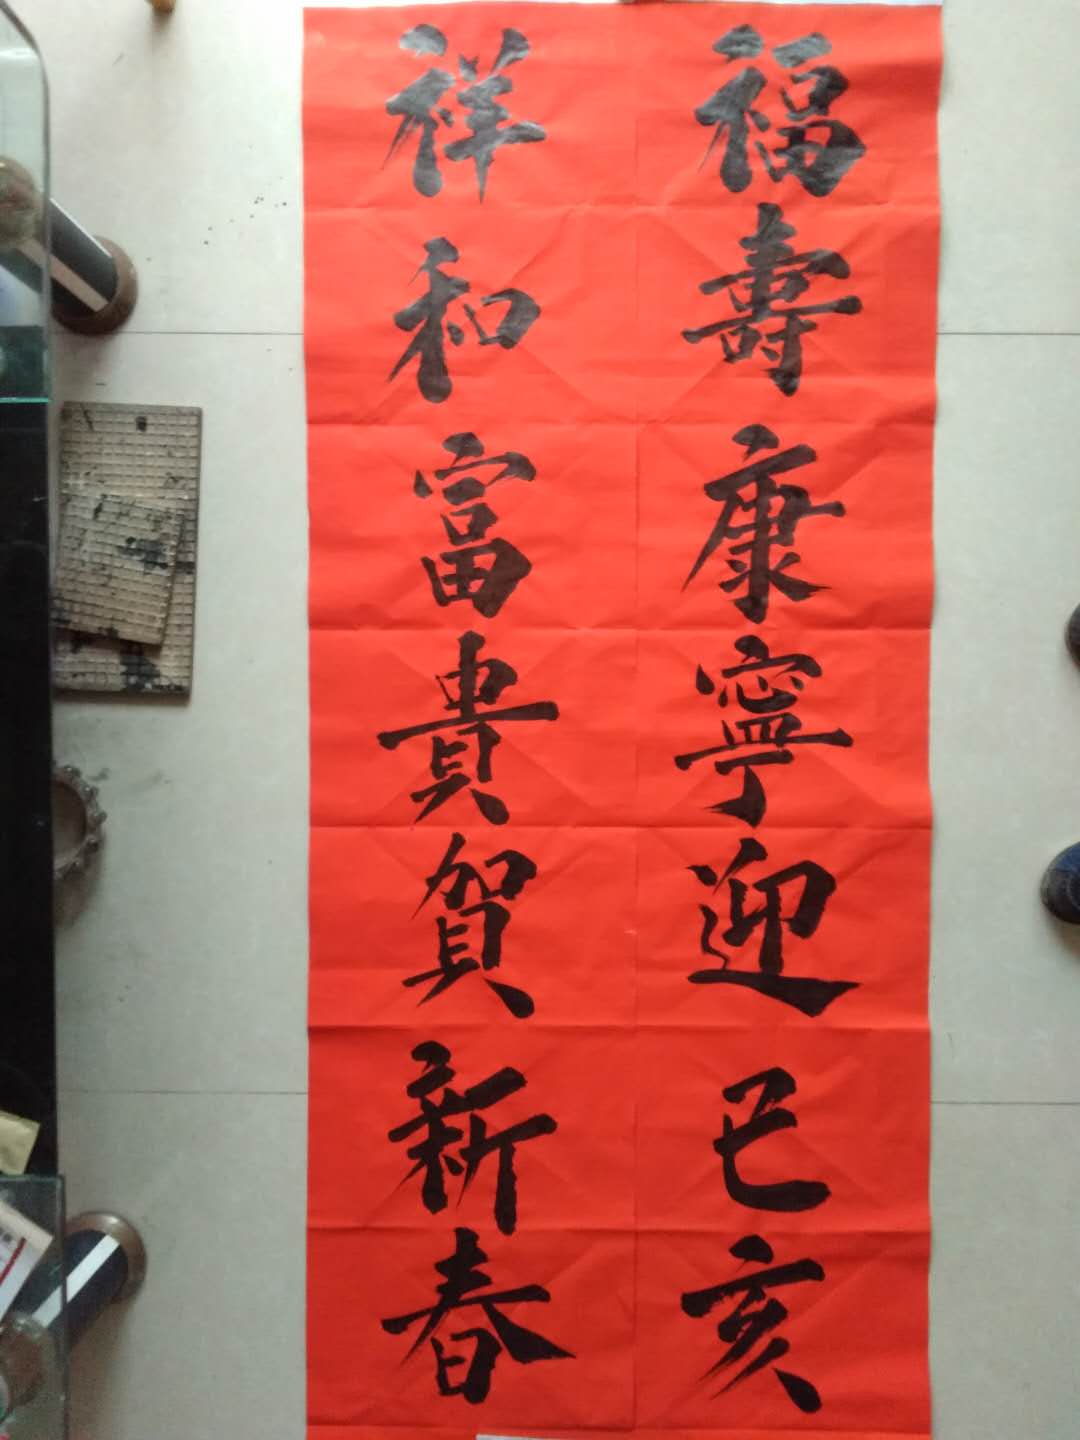 福壽康寧迎己亥
祥和富貴賀新春